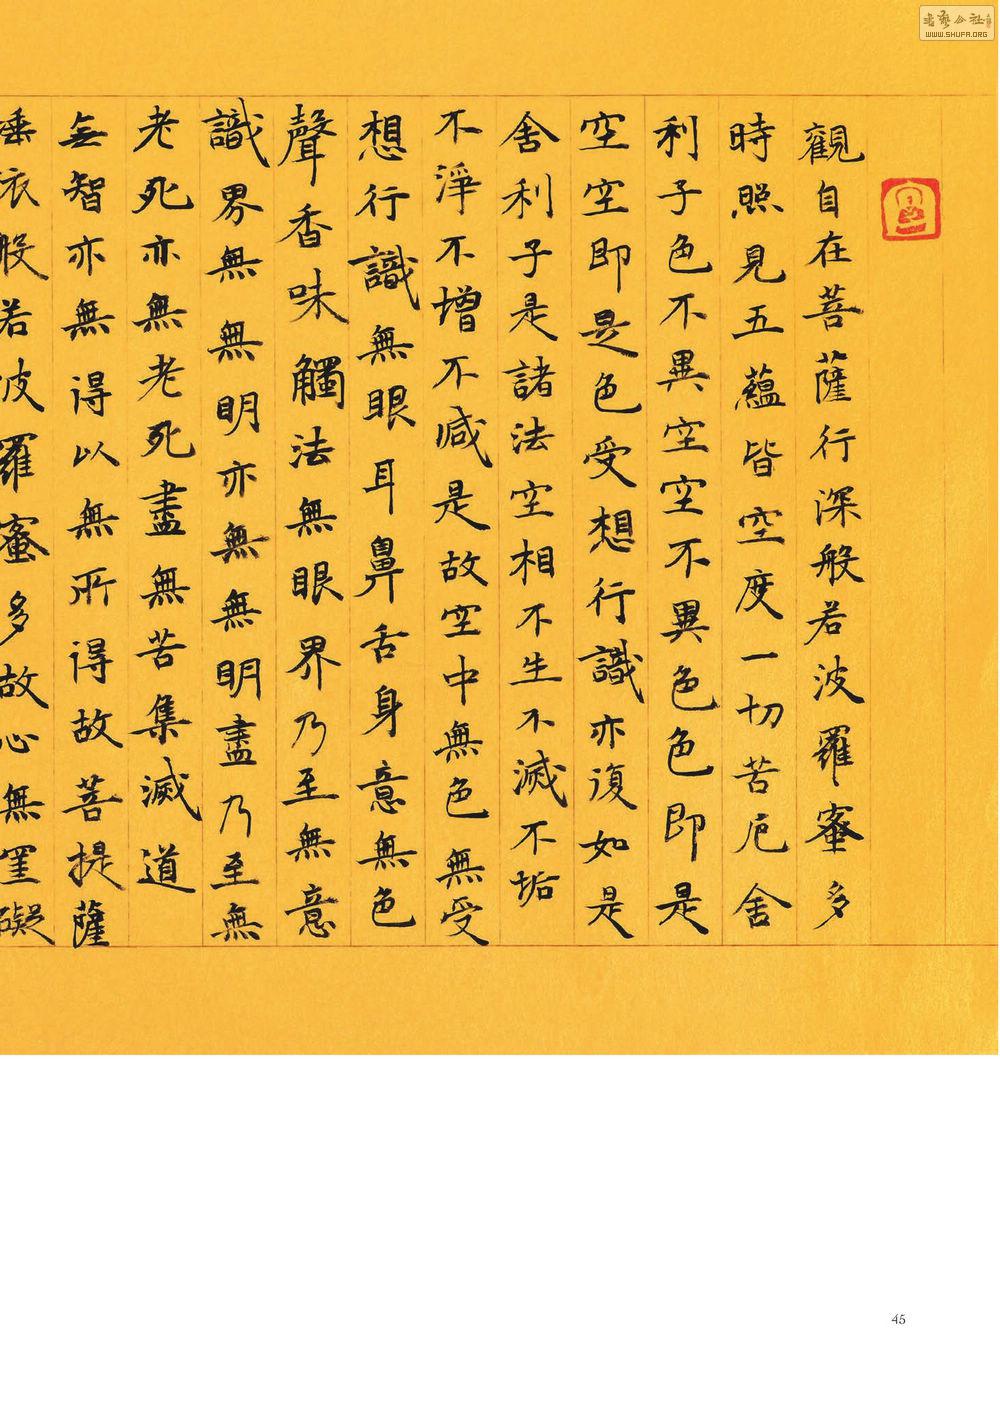 觀自在菩薩行深般若波羅蜜多
時照見五蘊皆空度一切苦厄舍
利子色不異空空不異色色即是
空空即是色受想行識亦復如是
舍利子是諸法空相不生不滅不垢
不淨不增不减是故空中無色無受
想行識無眼耳鼻舌身意無色
聲香味觸法無眼界乃至無意
識界無無明亦無無明盡乃至無
老死亦無老死盡無苦集滅道
無智亦無得以無所得故菩提薩
埵依般若波羅蜜多故心無罣礙
书艺公社
WWW.SHUFA.ORG
45